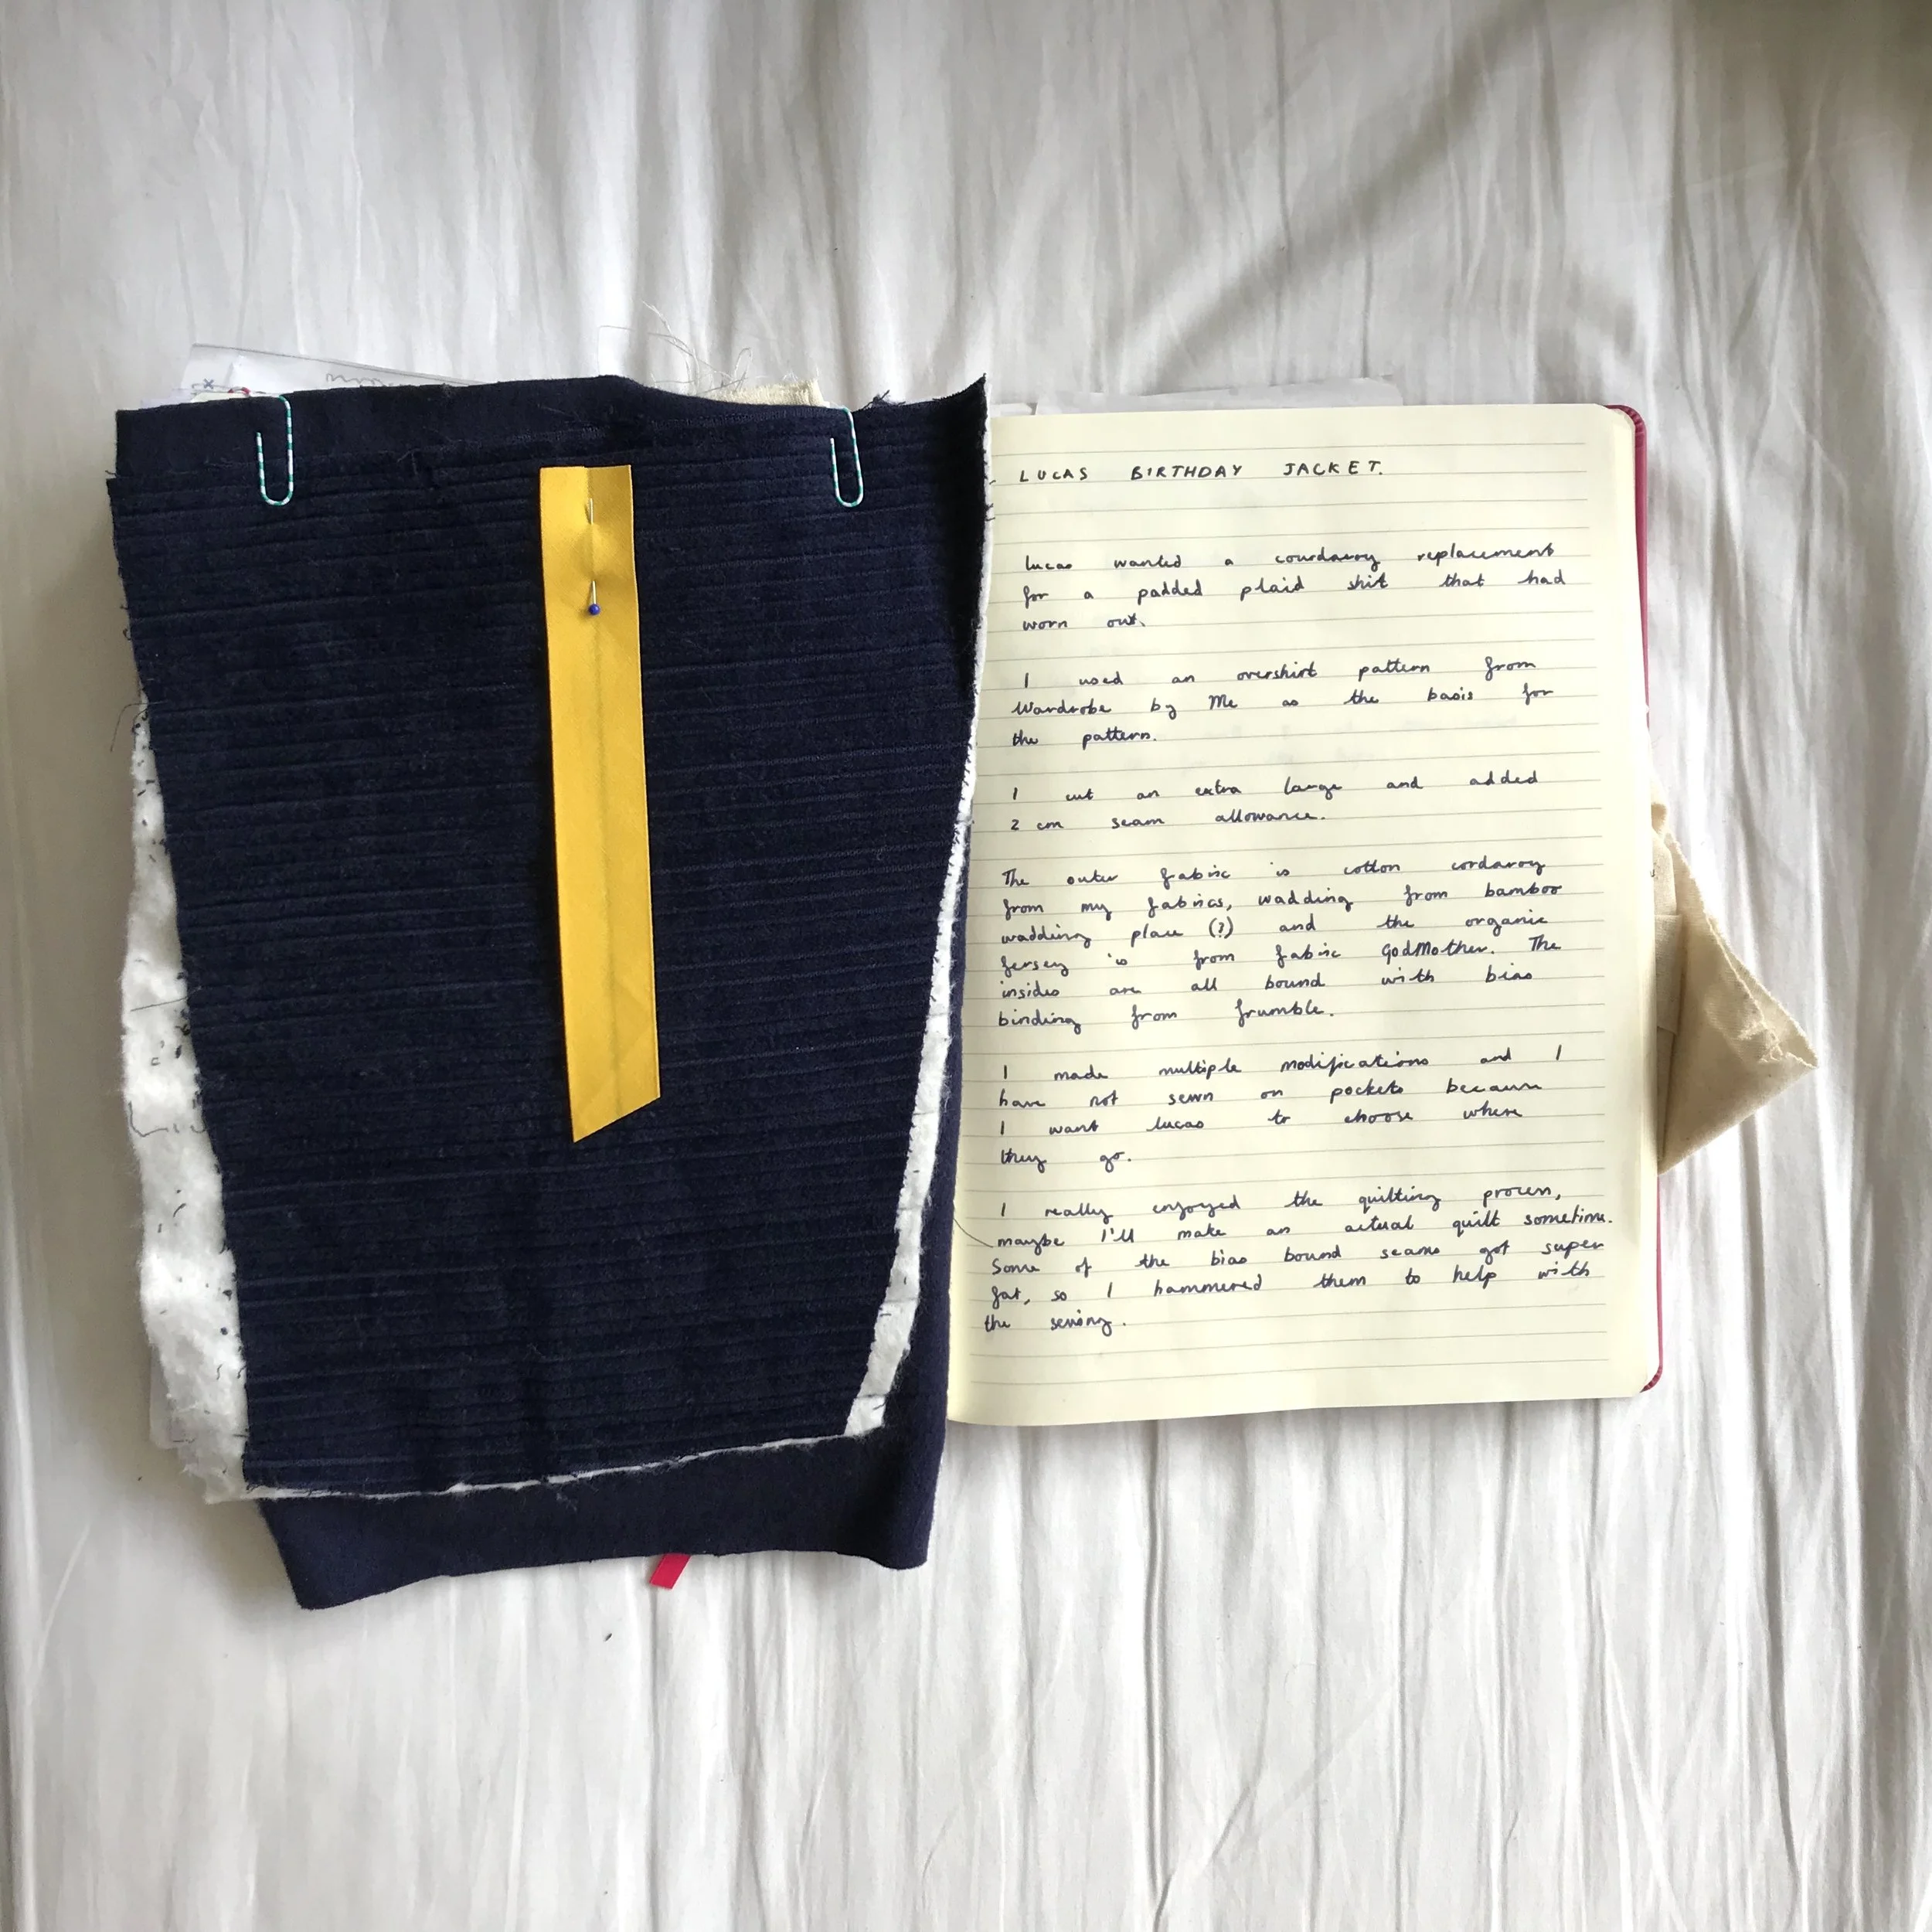 LUCAS BIRTHDAY JACKET.
lucas wanted a courdaroy replacement
for a padded plaid shit that had
worn out.
I used an overshirt pattern from
Wardrobe by Me as the basis for
the pattern.
I cut an extra large and added
2 cm seam allowance.
The outer fabric is cotton cordaroy
from my fabrics, wadding from bamboo
wadding place (?) and the organic
jersey is from fabric GodMother. The
insides are all bound with bias
binding from frumble.
I made multiple modifications and I
have not sewn on pockets because
I want lucas to choose where
they go.
I really enjoyed the quilting process,
maybe I'll make an actual quilt sometime.
Some of the bias bound seams got super
fat, so I hammered them to help with
the sewing.